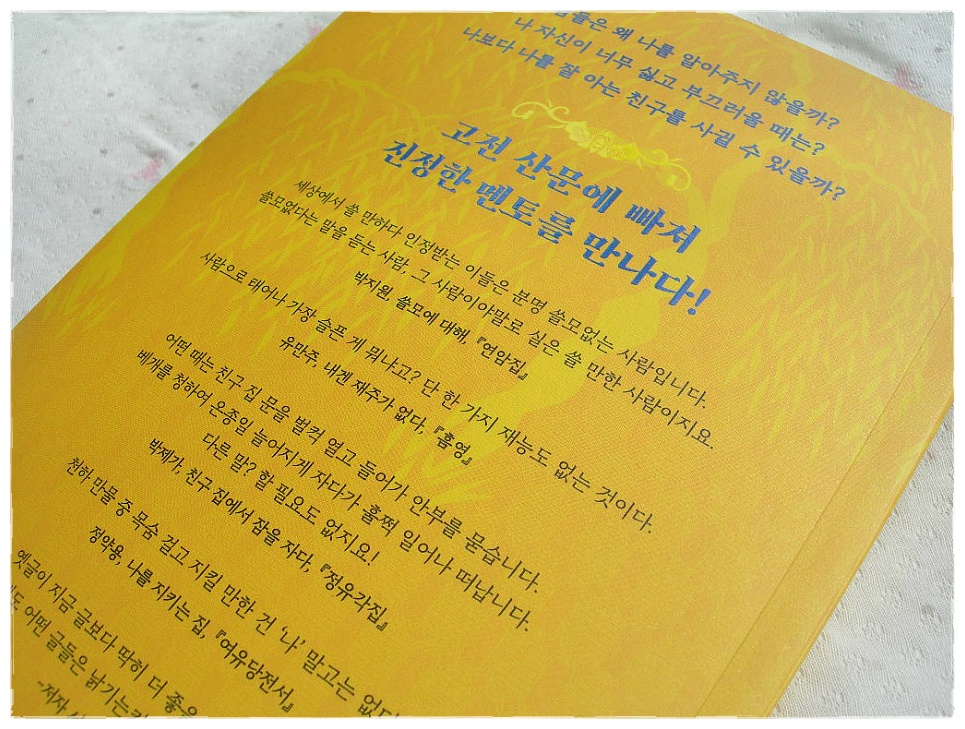 왜 나를 알아주지 않을까?
나 자신이 너무 싫고 부끄러울 때는?
나보다 나를 잘 아는 친구를 사귈 수 있을까?
고전 산문에 빠져
진정한 멘토를 만나다!
세상에서 쓸 만하다 인정받는 이들은 분명 쓸모없는 사람입니다.
쓸모없다는 말을 듣는 사람, 그 사람이야말로 실은 쓸 만한 사람이지요.
박지원, 쓸모에 대해, 『연암집』
사람으로 태어나 가장 슬픈 게 뭐냐고? 단 한 가지 재능도 없는 것이다.
유만주, 내겐 재주가 없다, 『흠영』
어떤 때는 친구 집 문을 벌컥 열고 들어가 안부를 묻습니다.
베개를 청하여 온종일 늘어지게 자다가 훌쩍 일어나 떠납니다.
다른 말? 할 필요도 없지요!
박제가, 친구 집에서 잠을 자다, 『정유각집』
천하 만물 중 목숨 걸고 지킬 만한 건 '나' 말고는 없다
정약용, 나를 지키는 집, 『여유당전서』
옛글이 지금 글보다 딱히 더 좋을
어떤 글들은 낡기는커
-저자